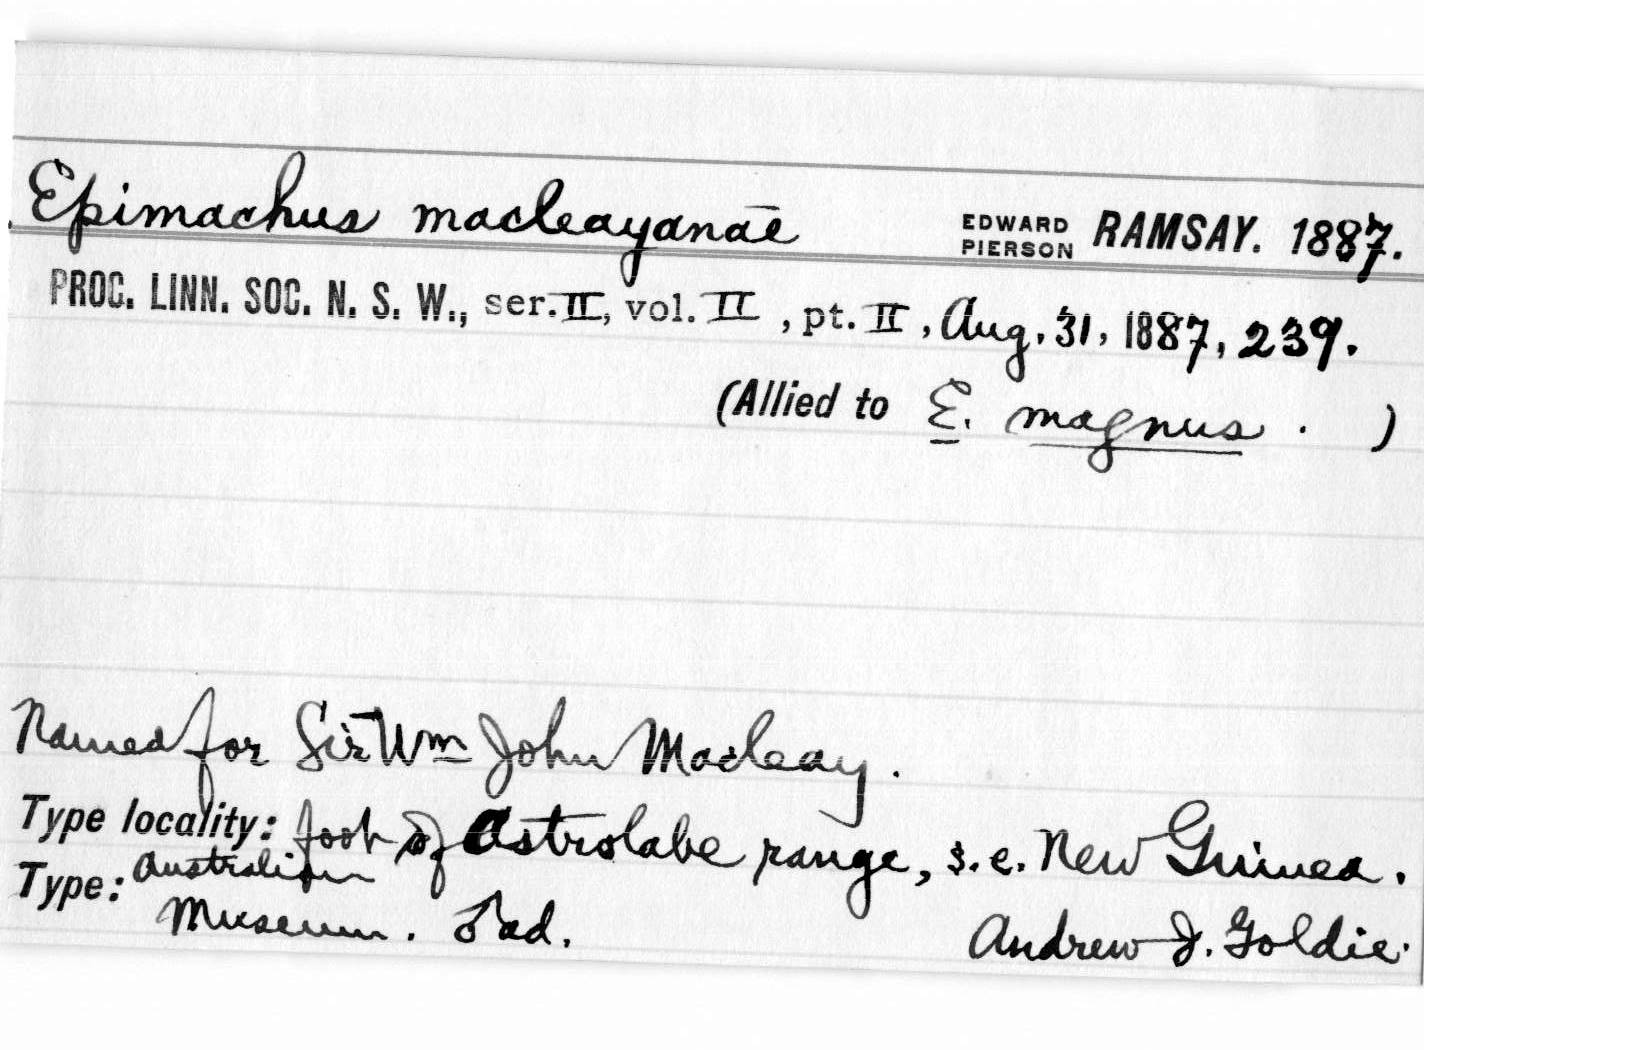 Epimachus macleayanae EDWARD PIERSON RAMSAY. 1887.
PROC. LINN. SOC. N. S. W., ser. II, vol. II, pt. II, Aug. 31, 1887, 239.
(Allied to E. magnus. )
Named for Sir Wm John Macleay.
Type locality: foot of Astrolabe range, s.e. New Guinea.
Type: Australian
Museum. ♂ ad. Andrew J. Goldie.